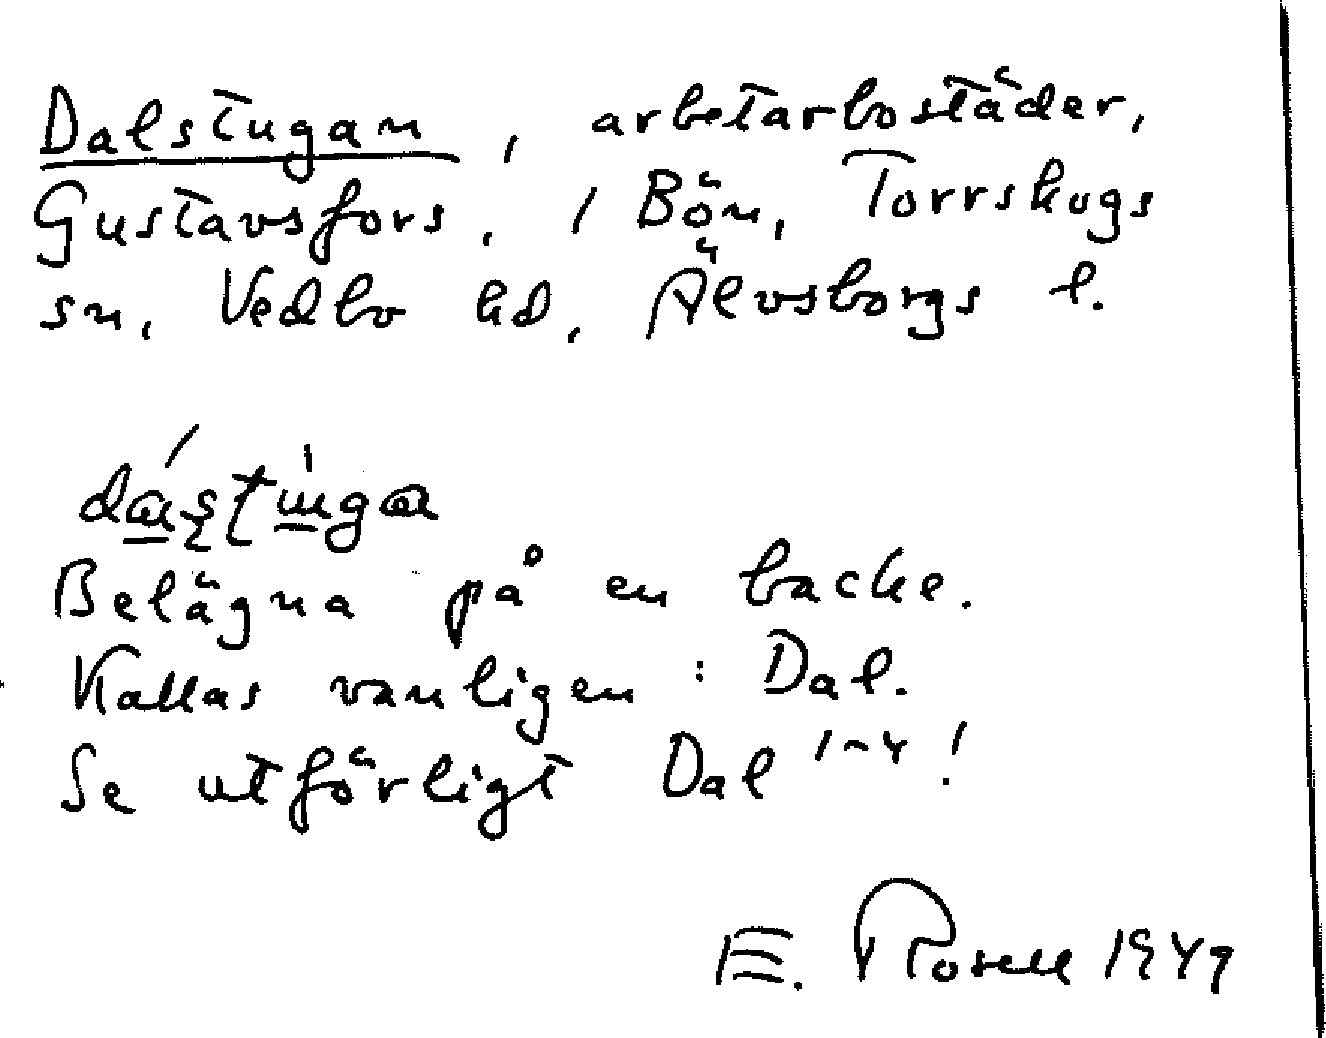 Dalstugan, arbetarbostäder,
Gustavsfors, 1 Bön, Torrskogs
sn, Vedbo hd, Älvsborgs l.
Belägna på en backe.
Kallas vanligen : Dal.
Se utförligt Dal 1-4 !
E. Rosell 1949